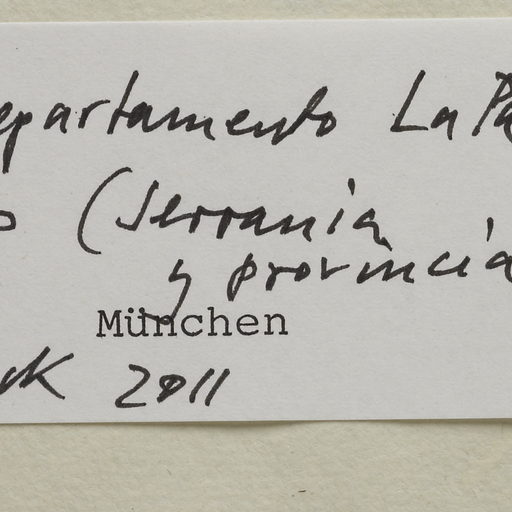 epartamento La Pa
o (Serrania
y provincia
München
ck 2011